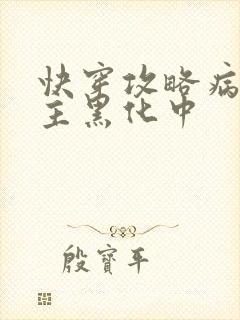 快穿攻略病
主黑化中
殷寶平